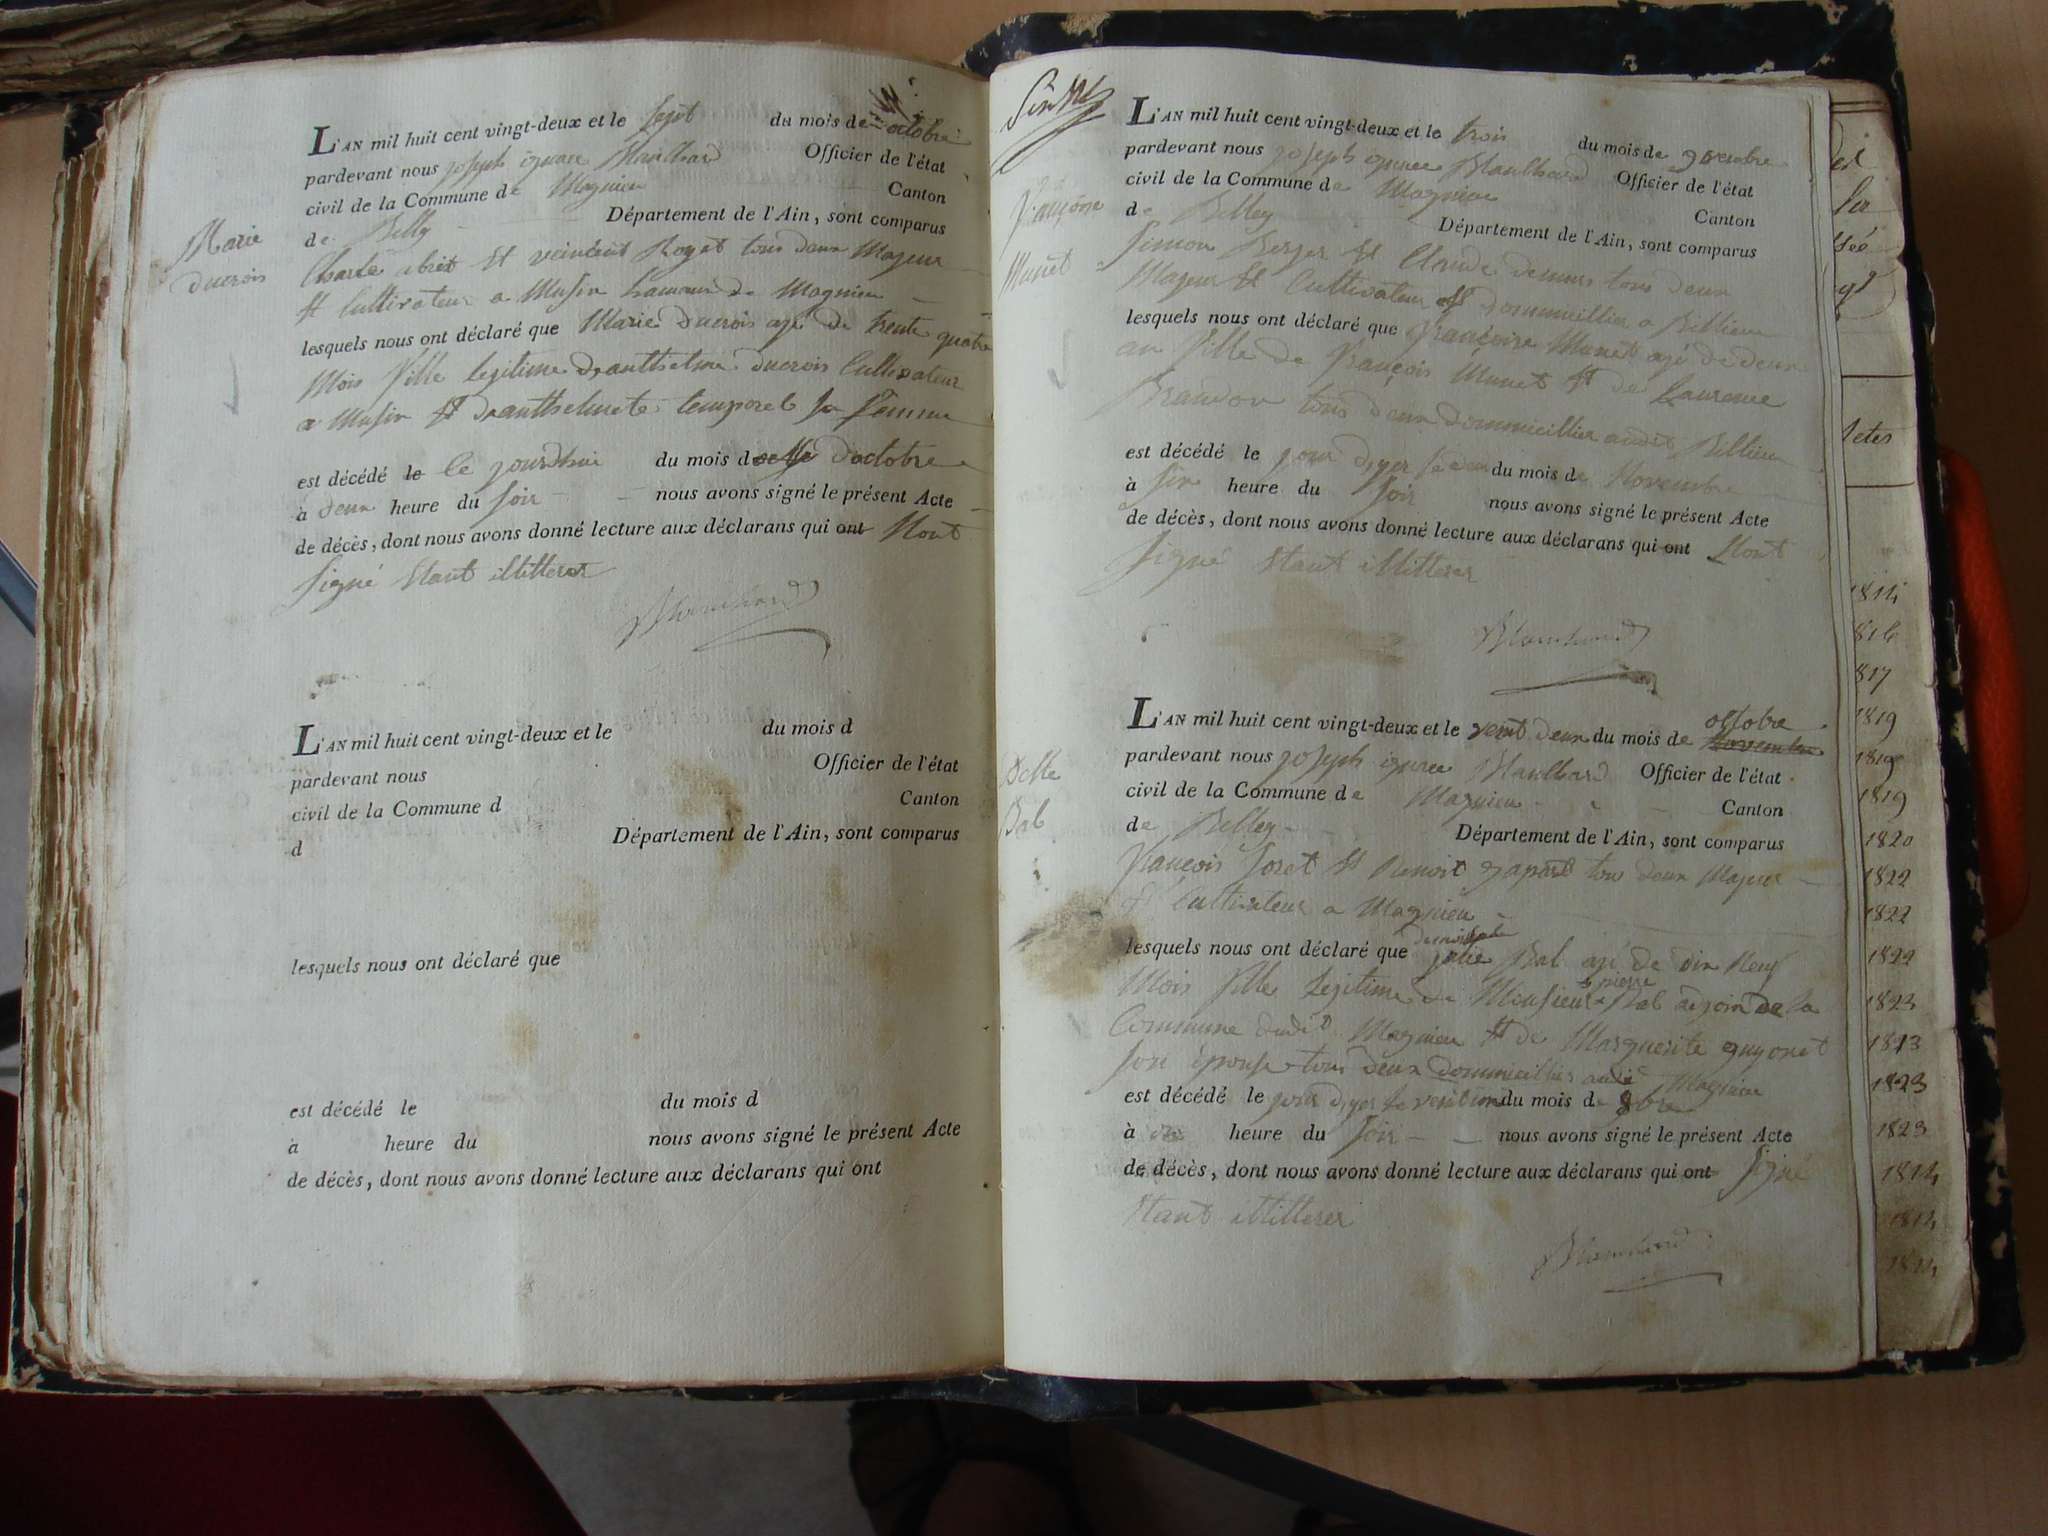 L'AN mil huit cent vingt-deux et le sept du mois de octobre
pardevant nous joseph ignace Officier de l'état
civil de la Commune de Magnieu Canton
de Belley Département de l'Ain, sont comparus
Marie
ducrois
Charle abret et veincent Royet tous deux Majeur
et Cultivateur a Musin hamaux de Magnieu
lesquels nous ont déclaré que Marie ducrois agé de trente quatre
Mois fille legitime d,anthelme ducrois Cultivateur
a Musin et d,anthelmete temporel sa femme
est décédé le Ce jourdhui du mois d doctobre
à deux heure du soir nous avons signé le présent Acte
de décès, dont nous avons donné lecture aux déclarans qui ont Nont
signé Etant illitterer
L'AN mil huit cent vingt-deux et le du mois d
pardevant nous Officier de l'état
civil de la Commune d Canton
d Département de l'Ain, sont comparus
lesquels nous ont déclaré que
est décédé le du mois d
à heure du nous avons signé le présent Acte
de décès, dont nous avons donné lecture aux déclarans qui ont
L'AN mil huit cent vingt-deux et le trois du mois de 9vembre
pardevant nous joseph ignace Officier de l'état
civil de la Commune de Magnieu Canton
de Belley Département de l'Ain, sont comparus
françoise
Munet
Simon Berger et Claude demurs tous deux
Majeur et Cultivateur et dommicillier a Billieu
lesquels nous ont déclaré que françoise Munet agé de deux
an fille de françois Munet et de Laurence
Brandon tous deux dommicillier audit Billieu
est décédé le jour d,yer du mois de Novembre
à six heure du soir nous avons signé le présent Acte
de décès, dont nous avons donné lecture aux déclarans qui ont Nont
signé Etant illitterer
L'AN mil huit cent vingt-deux et le veint deux du mois de Novembre octobre
pardevant nous joseph ignace Officier de l'état
civil de la Commune de Magnieu Canton
de Belley Département de l'Ain, sont comparus
Bal
françois foret et Benoit tous deux Majeur
et Cultivateur a Magnieu
lesquels nous ont déclaré que julie Bal agé de dix Neuf
Mois fille legitime de Monsieur pierre Bal adjoin de la
Commune dudit Magnieu et de Marguerite guyonet
son épouse tous deux dommicilliés audit Magnieu
est décédé le jour d,yer le veint un du mois de 8bre
à heure du soir nous avons signé le présent Acte
de décès, dont nous avons donné lecture aux déclarans qui ont signé
Etant illitterer
1814
816
817
1819
1819
1819
1820
1822
1822
1822
1823
1823
1823
1823
1814
1814
1814